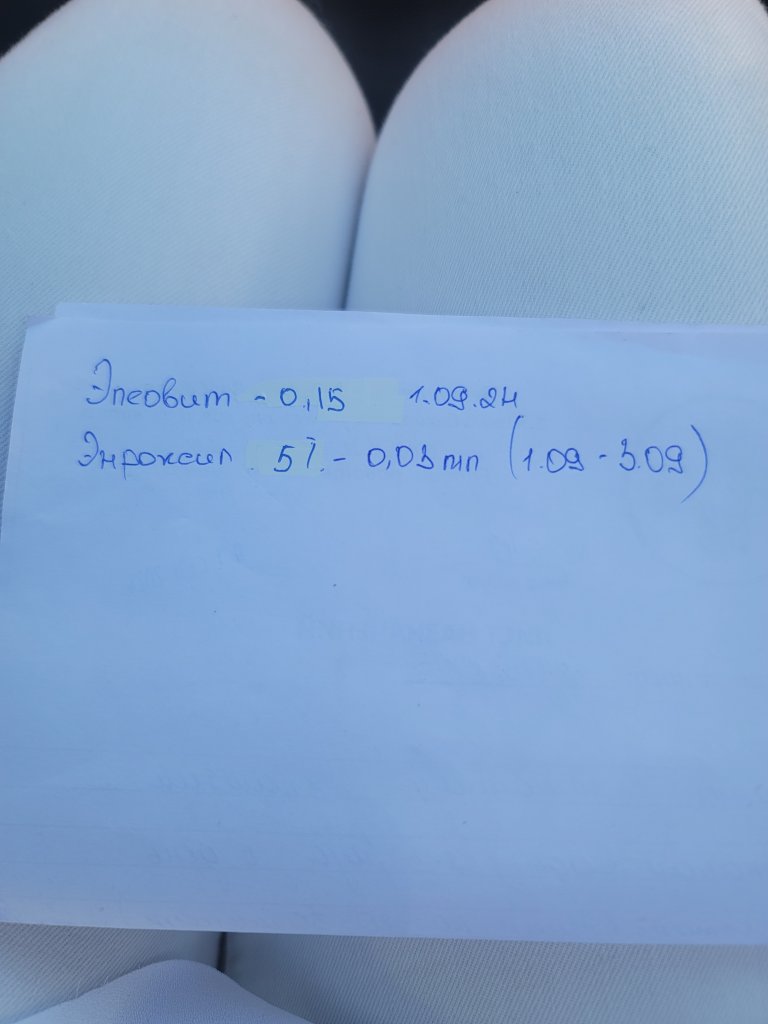 Элеовит - 0,15 1.09.24
Энроксил 5% - 0,03 мл (1.09 - 3.09)